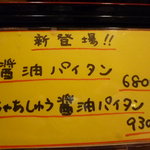 新登場!!
醤油パイタン
680
ちゃあしゅう醤油パイタン
930